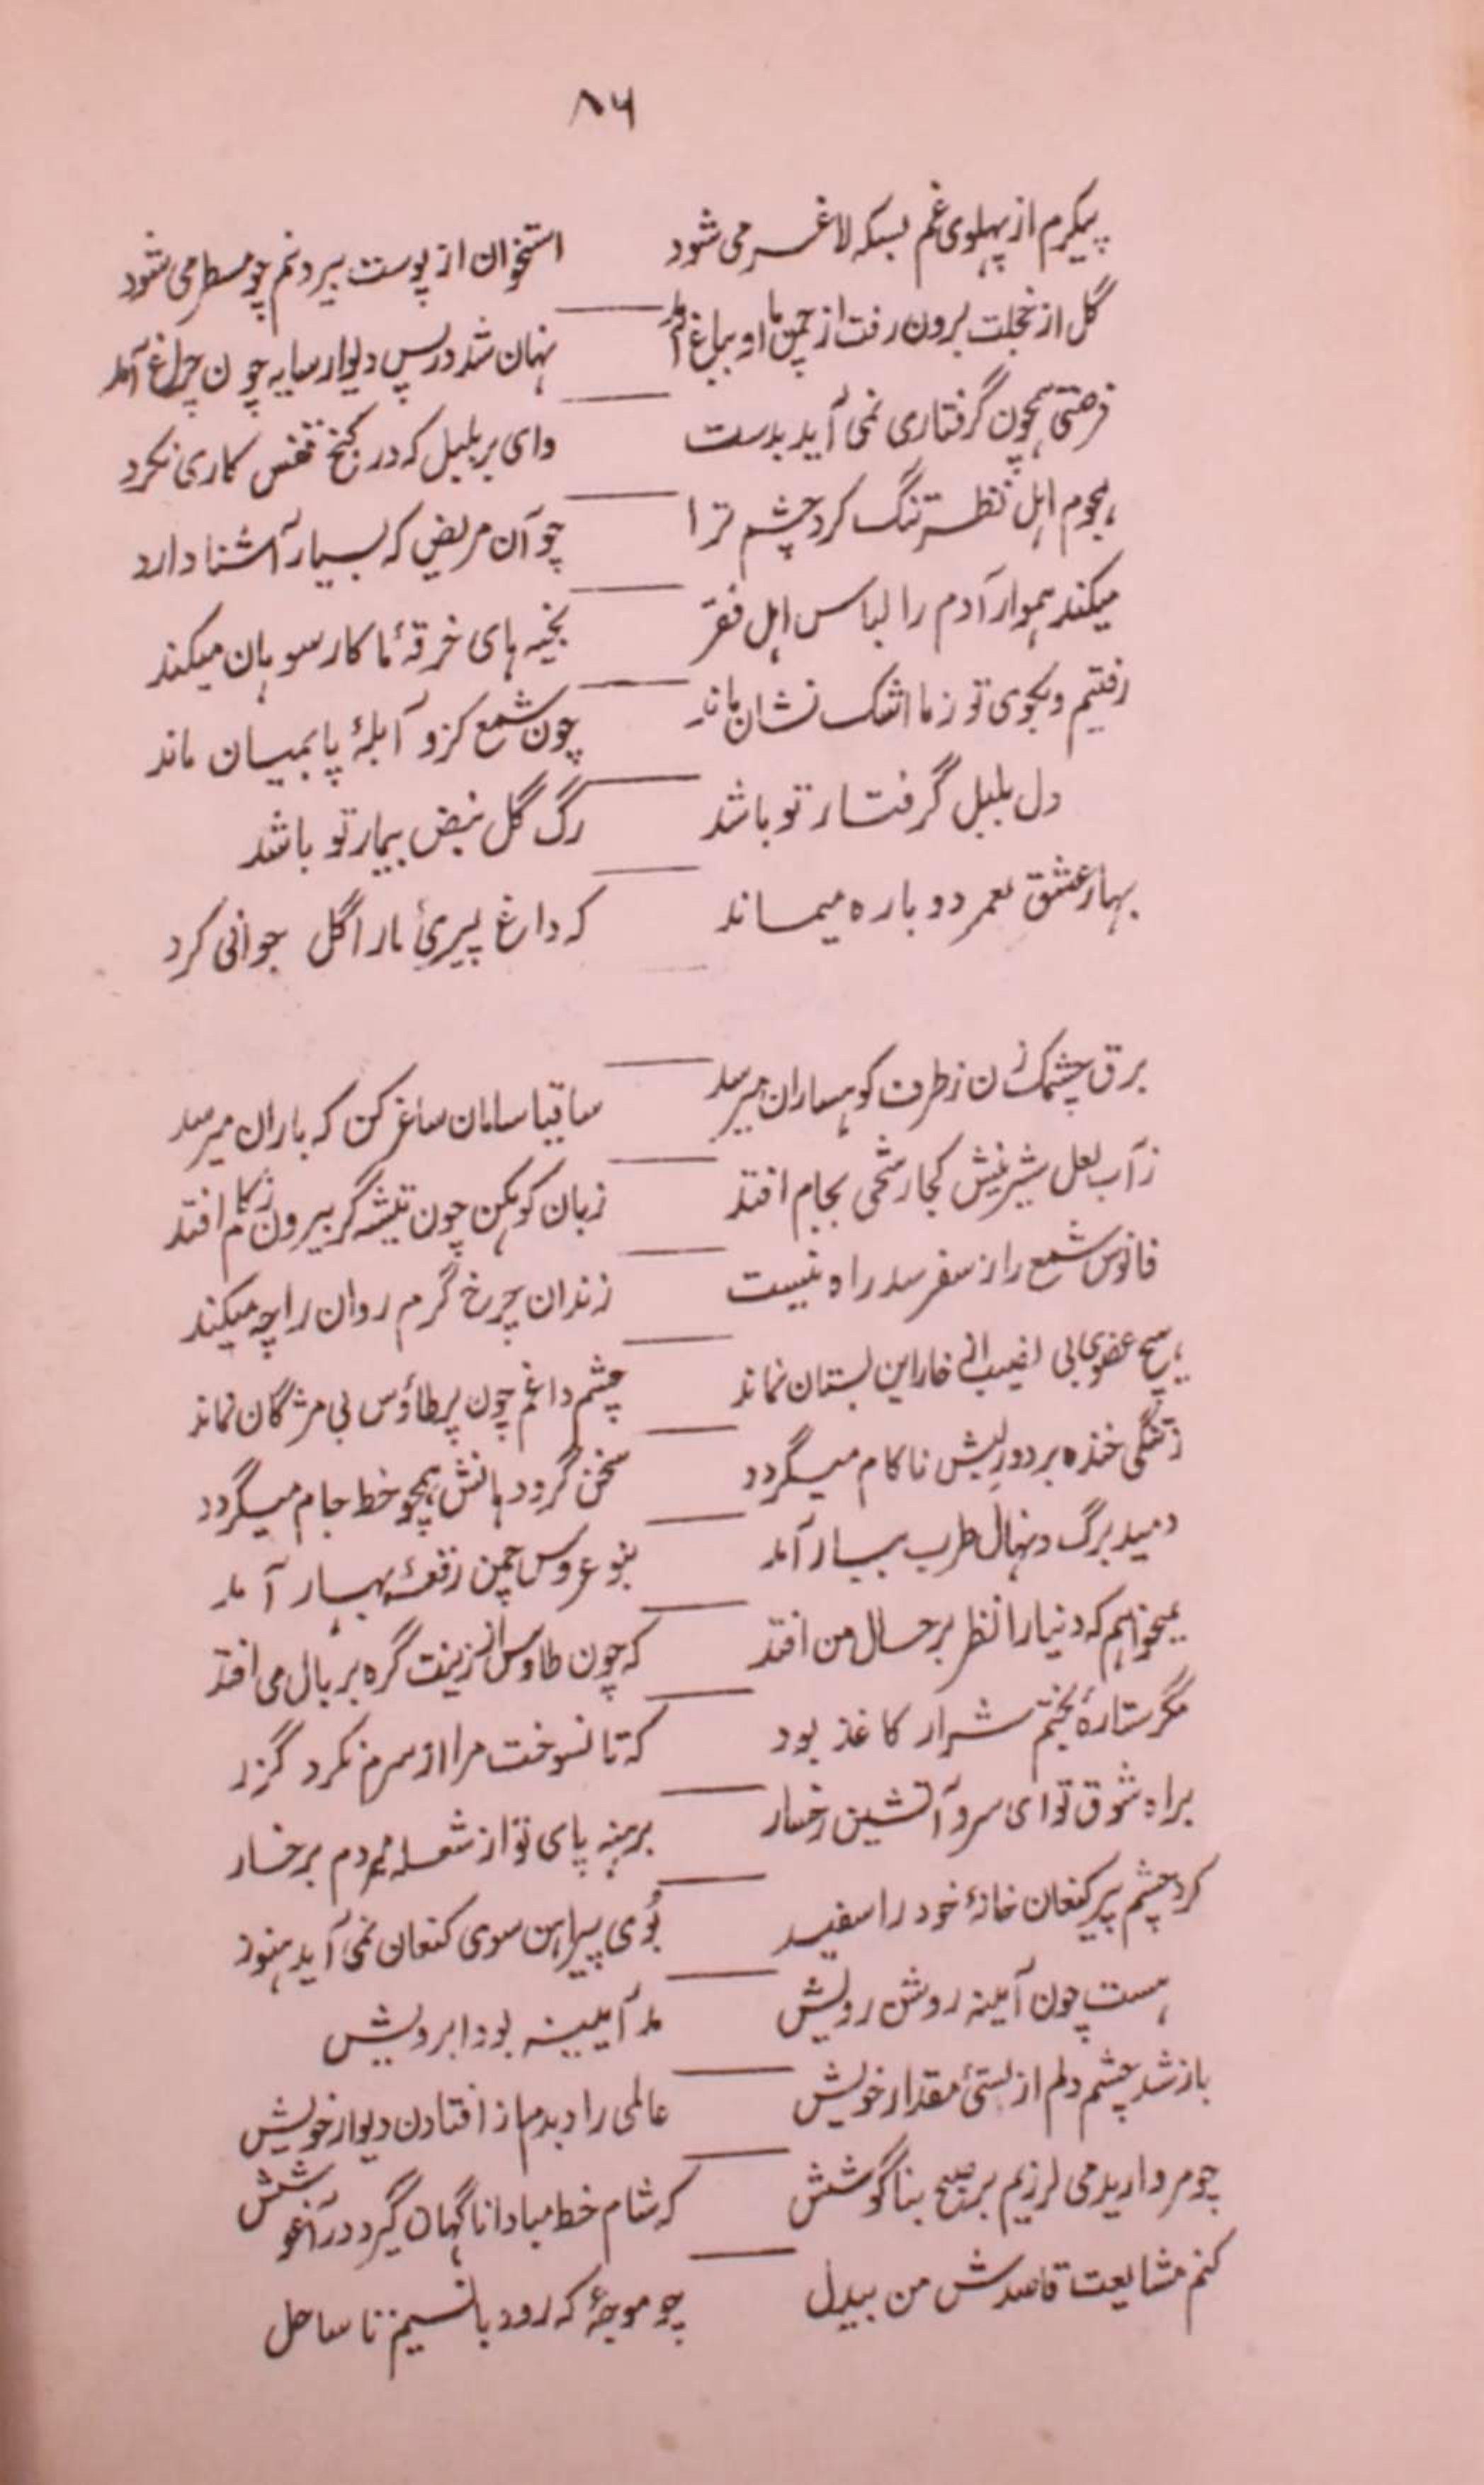 ۸۶
پیکرم از پهلوی غم بسکه لاغر می شود استخوان از پوست بیرونم چو مسطر می شود
گل از خجلت برون رفت از چمن تا او بباغ آمد نهان شد در پس دیوار سایه چون چراغ آمد
فرصتی همچون گرفتاری نمی آید بدست وای بر بلبل که در کنج قفس کاری نکرد
هجوم اهل نظر تنگ کرد چشم ترا چو آن مریض که بسیار آشنا دارد
میکند هموار آدم را لباس اهل فقر بخیه های خرقهٔ ما کار سوهان میکند
رفتیم و بکوی تو ز ما اشک نشان ماند چون شمع کزو آبلهٔ پا بمیان ماند
دل بلبل گرفتار تو باشد رگ گل نبض بیمار تو باشد
بهار عشق بعمر دوباره میماند که داغ پیریٔ ما را گل جوانی کرد
برق چشمک زن ز طرف کوهساران میرسد ساقیا سامان ساغر کن که باران میرسد
ز آب لعل شیرینش کجا رشحی بجام افتد زبان کوهکن چون تیشه گر بیرون ز کام افتد
فانوس شمع را ز سفر سد راه نیست زندان چرخ گرم روان را چه میکند
هیچ عضوی بی نصیب از خار این بستان نماند چشم داغم چون پر طاؤس بی مژگان نماند
ز تنگی خنده بر دور لبش ناکام میگردد سخن گرد دهانش همچو خط جام میگردد
دمید برگ و نهال طرب ببار آمد بنو عروس چمن رقعهٔ بهار آمد
نمیخواهم که دنیا را نظر بر حال من افتد که چون طاوس از زینت گره بر بال می افتد
مگر ستارهٔ بختم شرار کاغذ بود که تا نسوخت مرا از سرم نکرد گزر
براه شوق تو ای سرو آتشین رخسار برهنه پای تو از شعله میدوم بر خار
کرد چشم پیر کنعان خانهٔ خود را سفید بُوی پیراهن سوی کنعان نمی آید هنوز
هست چون آیینه روشن رویش مد آیینه بود ابرویش
باز شد چشم دلم از پستیٔ مقدار خویش عالمی را دیدم از افتادن دیوار خویش
چو مروارید می لرزیم بر صبح بناگوشش که شام خط مبادا ناگهان گیرد در آغوشش
کنم مشایعت قاصدش من بیدل چو موجهٔ که رود با نسیم تا ساحل